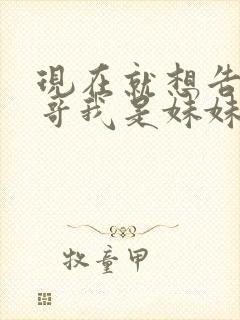 現在就想告
哥我是妹妹
牧童甲